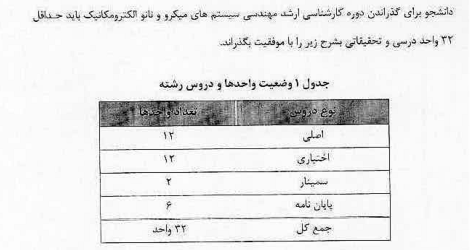 دانشجو برای گذراندن دوره کارشناسی ارشد مهندسی سیستم های میکرو و نانو الکترومکانیک باید حداقل
۳۲ واحد درسی و تحقیقاتی بشرح زیر را با موفقیت بگذراند.
جدول ۱ وضعیت واحدها و دروس رشته
نوع دروس تعداد واحدها
اصلی ۱۲
اختیاری ۱۲
سمینار ۲
پایان نامه ۶
جمع کل ۳۲ واحد